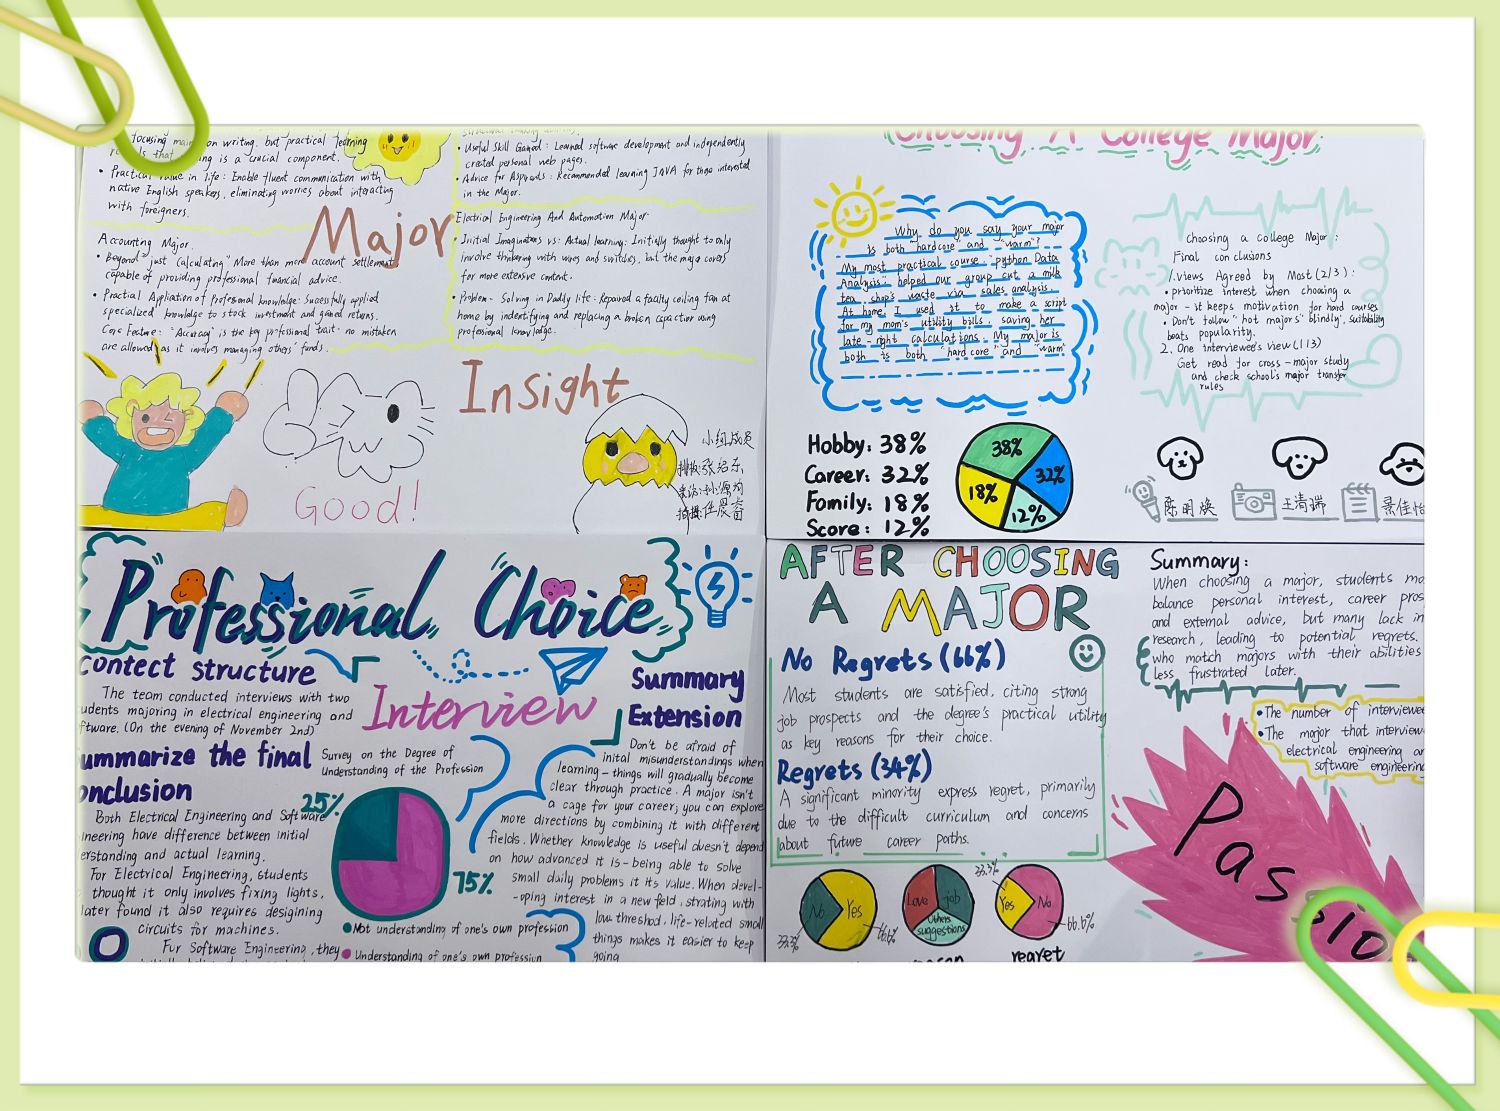 focusing main on writing, but practical learning
that is a crucial component.
• Practical value in life: Enable fluent communication with
native English speakers, eliminating worries about interacting
with foreigners.
Major
Accounting Major.
• Beyond "just calculating" More than mere account settlement
capable of providing professional financial advice.
• Practical Application of Professional knowledge: Successfully applied
specialized knowledge to stock investment and gained returns.
Core Feature: "Accuracy" is the key professional trait - no mistaken
are allowed as it involves managing others' funds.
• Useful Skill Gained: Learned software development and independently
created personal web pages.
• Advice for Aspirants: Recommended learning JAVA for those interested
in the Major.
Electrical Engineering And Automation Major
• Initial Imaginations vs. Actual learning: Initially thought to only
involve thinkering with wires and switches, but the major covers
far more extensive content.
• Problem - Solving in Daddy life: Repaired a faulty ceiling fan at
home by indentifying and replacing a broken capacitor using
professional knowledge.
Insight
Good!
小组成员
Choosing A College Major
Why do you say your major
is both "hardcore" and "warm"?
My most practical course, "python Data
Analysis" helped our group cut a milk
tea shop's waste via sales analysis.
At home, I used it to make a script
for my mom's utility bills, saving her
late-night calculations. My major is
both is both "hard core" and "warm"
Choosing a College Major:
Final conclusions
1.views Agreed by Most (2/3):
• prioritize interest when choosing a
major - it keeps motivation for hard courses
• Don't follow "hot majors" blindly, suitability
beats popularity.
2. One interviewee's view (1/3)
Get read for cross-major study
and check school's major transfer
rules
Hobby: 38%
Career: 32%
Family: 18%
Score: 12%
38%
32%
18%
12%
陈明焕
王清瑞
景佳怡
Professional Choice
contect structure
The team conducted interviews with two
udents majoring in electrical engineering and
ftware. (On the evening of November 2nd)
ummarize the final
onclusion
Both Electrical Engineering and Software
ineering have difference between initial
erstanding and actual learning.
For Electrical Engineering, students
thought it only involves fixing lights,
later found it also requires desigining
circuits for machines.
Fur Software Engineering, they
Interview
Survey on the Degree of
Understanding of the Profession
25%
75%
• Not understanding of one's own profession
• Understanding of one's own profession
Summary
Extension
Don't be afraid of
inital misunderstandings when
learning - things will gradually become
clear through practice. A major isn't
a cage for your career; you can explore
more directions by combining it with different
fields. Whether knowledge is useful doesn't depend
on how advanced it is - being able to solve
small daily problems it its value. When devel-
-oping interest in a new field, strating with
low threshold, life-related small
things makes it easier to keep
going
AFTER CHOOSING
A MAJOR
No Regrets (66%)
Most students are satisfied, citing strong
job prospects and the degree's practical utility
as key reasons for their choice.
Regrets (34%)
A significant minority express regret, primarily
due to the difficult curriculum and concerns
about future career paths.
No
Yes
33.3%
66.6%
Love
job
Others
suggestions
33.3%
Yes
No
66.6%
regret
Summary:
When choosing a major, students mo
balance personal interest, career pros
and external advice, but many lack in
research, leading to potential regrets.
who match majors with their abilities
less frustrated later.
• The number of interviewee
• The major that interview
electrical engineering an
software engineering
Passion